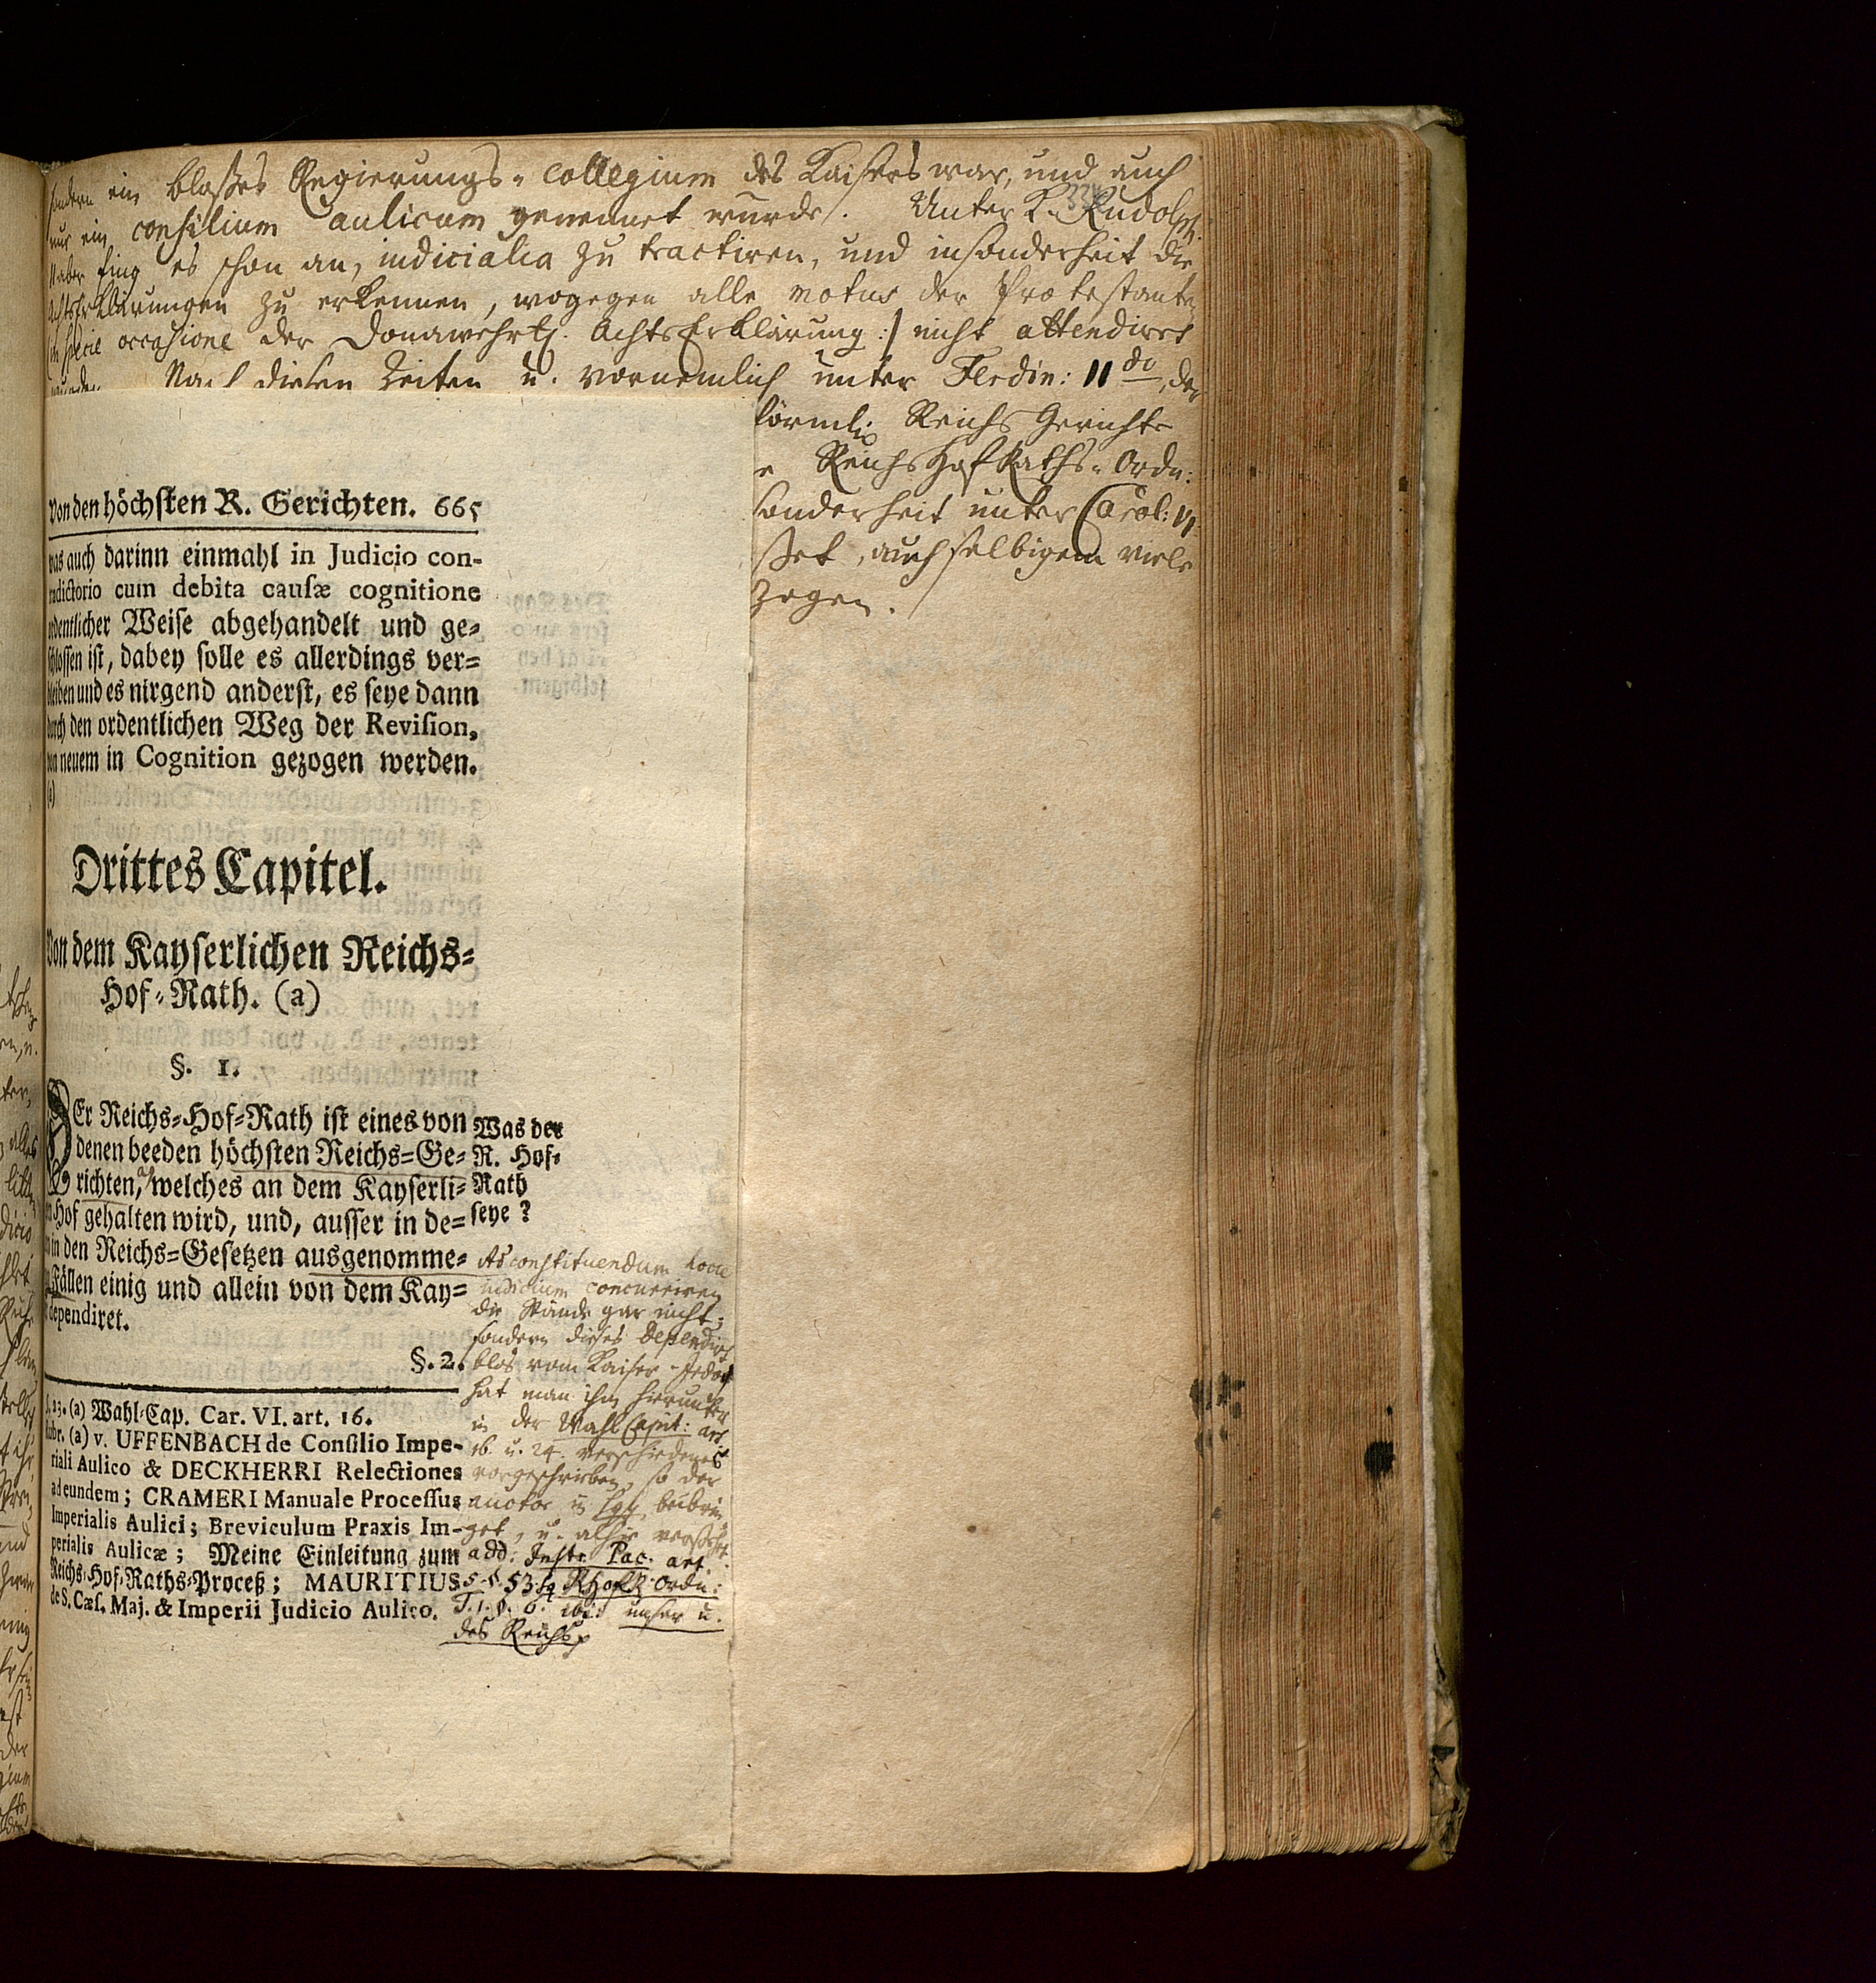 sondern ein bloßes Regierungs-Collegium des Kaisers war, und auch
nur ein consilium aulicum genennet wurde. Unter K. Rudolph
II aber fing es schon an, iudicialia zu tractiren, und insonderheit die
AchtsErklärungen zu erkennen, wogegen alle motus der Protestanten
in specie occasione der Donawehrt. AchtsErklärung :/ nicht attendiret
wurden. Nach diesen Zeiten u. vornemlich unter Ferdin: II do, der
förmlich Reichs Gerichte
e ReichsHofRaths-Ordn:
sonderheit unter Carol: VI
ßet, auch selbigem viele
zogen.
Von den höchsten R. Gerichten. 665
was auch darinn einmahl in Judicio con-
tradictorio cum debita causæ cognitione
ordentlicher Weise abgehandelt und ge-
schlossen ist, dabey solle es allerdings ver-
bleiben und es nirgend anderst, es seye dann
durch den ordentlichen Weg der Revision,
von neuem in Cognition gezogen werden.
Drittes Capitel.
Von dem Kayserlichen Reichs-
Hof-Rath. (a)
§. 1.
DEr Reichs-Hof-Rath ist eines von
denen beeden höchsten Reichs-Ge-
richten, welches an dem Kayserli-
Hof gehalten wird, und, ausser in de-
in den Reichs-Gesetzen ausgenomme-
Fällen einig und allein von dem Kay-
dependiret.
Was der
R. Hof-
Rath
seye?
§. 2.
Ad constituendum hocce
iudicium concurriren
die Stände gar nicht,
sondern dieses dependirt
blos vom Kaiser. Jedoch
hat man ihm hierunter
in der WahlCapit: art.
16. u. 24. verschiedenes
vorgeschrieben, so der
auctor in sqq beibrin
get, u. alhir
add. Instr. Pac. art.
5. §. 53. sq RHofR. Ordn:
T. 1. §. 6. ibi: unser u.
des Reichs
§. 23. (a) Wahl-Cap. Car. VI. art. 16.
Rubr. (a) v. UFFENBACH de Consilio Impe-
riali Aulico & DECKHERRI Relectiones
ad eundem; CRAMERI Manuale Processus
Imperialis Aulici; Breviculum Praxis Im-
perialis Aulicæ; Meine Einleitung zum
Reichs-Hof-Raths-Proceß; MAURITIUS
de S. Cæs. Maj. & Imperii Judicio Aulico.